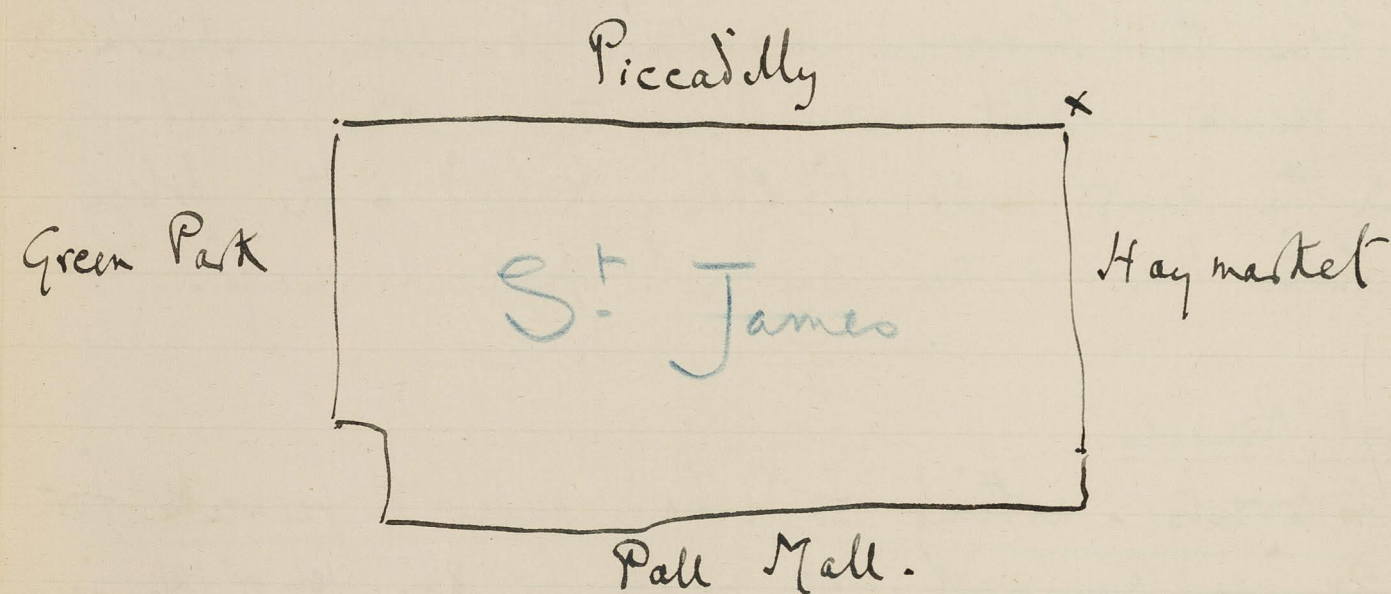 Piccadilly
x
Green Park
St. James
Haymarket
Pall Mall.